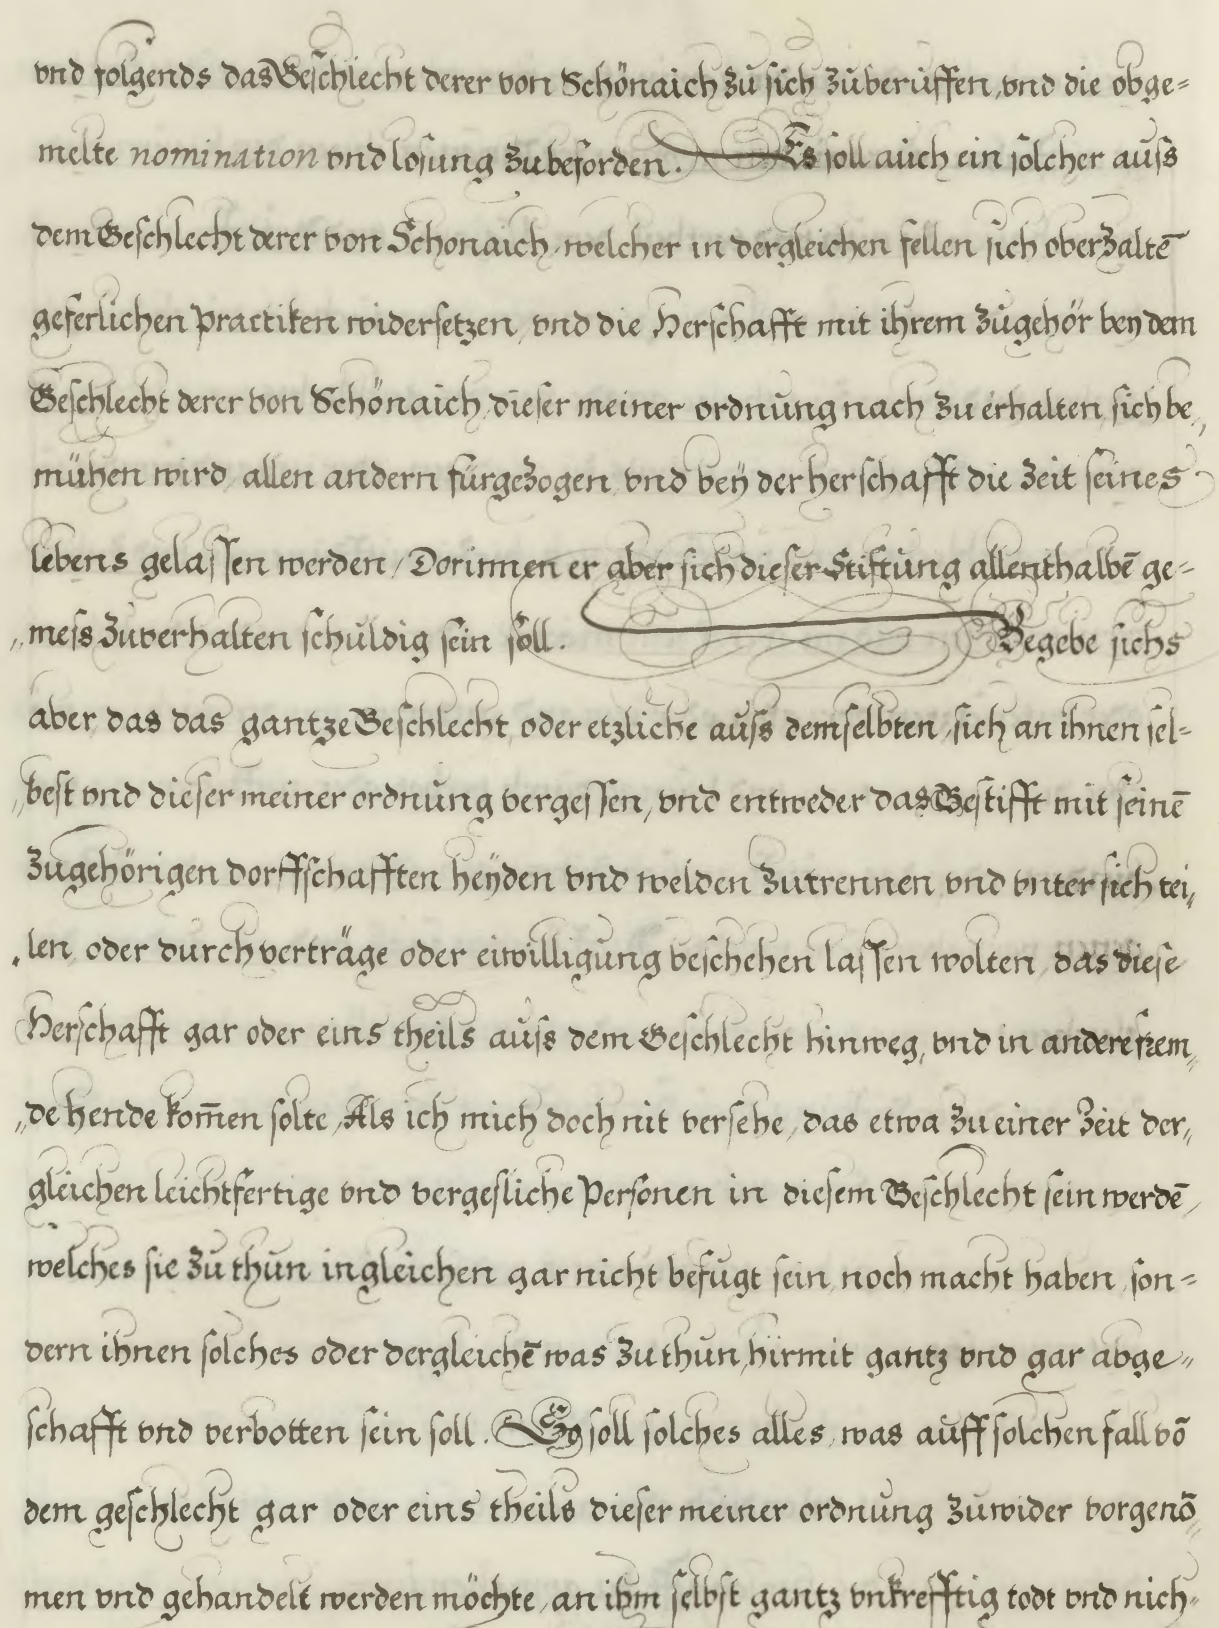 vnd folgends das Geschlecht derer von Schönaich zu sich zuberuffen, vnd die obge=
melte nomination vnd losung zubeforden. Es soll auch ein solcher auss
dem Geschlecht derer von Schonaich, welcher in dergleichen fellen sich oberzaltē
geferlichen Practiken widersetzen, vnd die Herschafft mit ihrem zugehör bey dem
Geschlecht derer von Schönaich, dieser meiner ordnung nach zu erhalten, sich be„
mühen wird, allen andern fürgezogen, vnd beÿ der herschafft die Zeit seines
lebens gelassen werden, Dorinnen er aber sich dieser Stiftung allenthalbē ge=
„mess zuverhalten schuldig sein soll. Begebe sichs
aber das das gantze Geschlecht, oder etzliche auss demselbten, sich an ihnen sel=
„best vnd dieser meiner ordnung vergessen, vnd entweder das Gestifft mit seinē
zugehörigen dorffschafften heÿden vnd welden zutrennen vnd vnter sich tei„
„len, oder durch verträge oder eiwilligung beschehen lassen wolten, das diese
Herschafft gar oder eins theils auss dem Geschlecht hinweg, vnd in andere frem„
„de hende kom̄en solte, Als ich mich doch nit versehe, das etwa zu einer Zeit der„
gleichen leichtfertige vnd vergesliche Personen in diesem Geschlecht sein werdē,
welches sie zu thun ingleichen gar nicht befugt sein, noch macht haben, son=
dern ihnen solches oder dergleichē was zu thun, hirmit gantz vnd gar abge„
schafft vnd verbotten sein soll. So soll solches alles, was auff solchen fall vō
dem geschlecht gar oder eins theils dieser meiner ordnung zuwider vorgenō„
men vnd gehandelt werden möchte, an ihm selbst gantz vnkrefftig todt vnd nich„